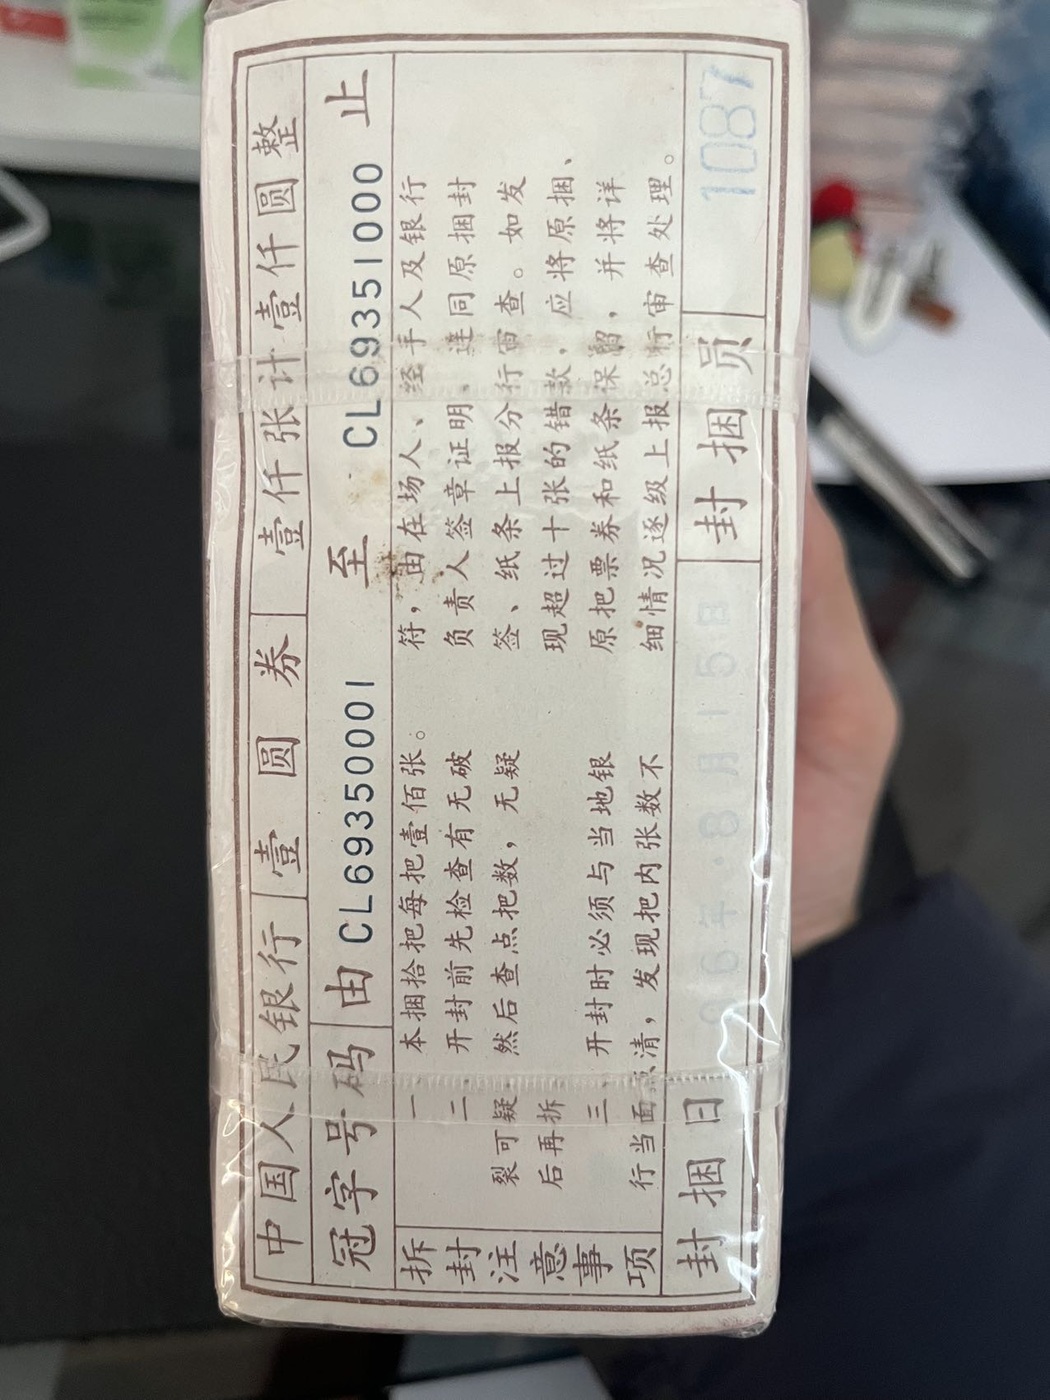 中国人民银行 壹圆券 壹仟张计壹仟圆整
冠字号码 由 CL69350001 至 CL69351000 止
拆封注意事项
一 本捆拾把每把壹佰张。
二 开封前先检查有无破
裂可疑，然后查点把数，无疑
后再拆
三 开封时必须与当地银
行当面点清，发现把内张数不
符，由在场人、经手人及银行
负责人签章证明、连同原捆封
签、纸条上报分行审查。如发
现超过十张的错款，应将原捆、
原把票券和纸条保留，并将详
细情况逐级上报总行审查处理。
封捆日 96年.8月15日 封捆员 1087